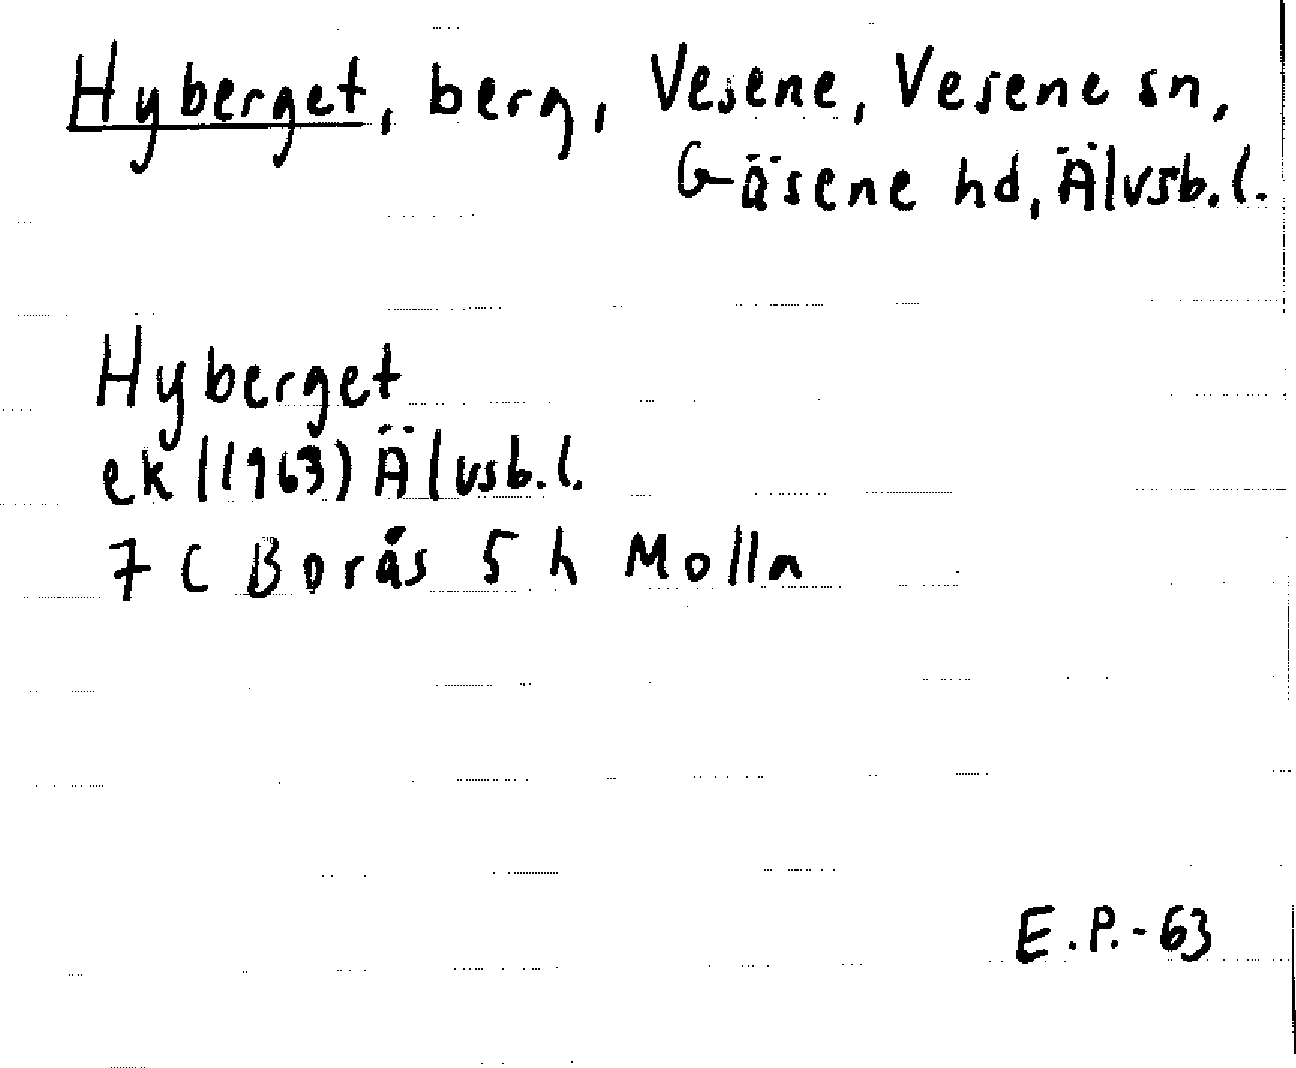 Hyberget, berg, Vesene, Vesene sn,
Gäsene hd, Älvsb.l.
Hyberget
ek (1963) Älvsb.l.
7 C Borås 5 h Molla
E.P.-63